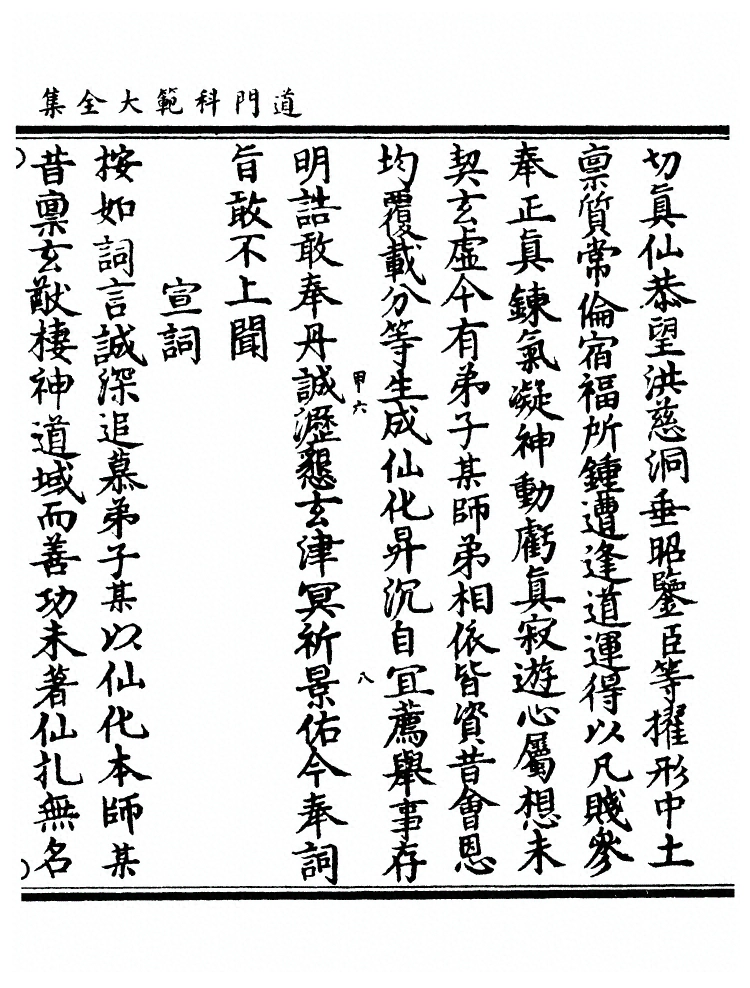 道門科範大全集
切真仙恭望洪慈洞垂昭鑒臣等擢形中土
禀質常倫宿福所鍾遭逢道運得以凡賤參
奉正真鍊氣凝神動虧真寂遊心屬想未
契玄虛今有弟子某師弟相依皆資昔會恩
均覆載分等生成仙化昇沉自宜薦舉事存
甲六
八
明誥敢奉丹誠瀝懇玄津冥祈景佑今奉詞
旨敢不上聞
宣詞
按如詞言誠深追慕弟子某以仙化本師某
昔禀玄猷棲神道域而善功未著仙札無名